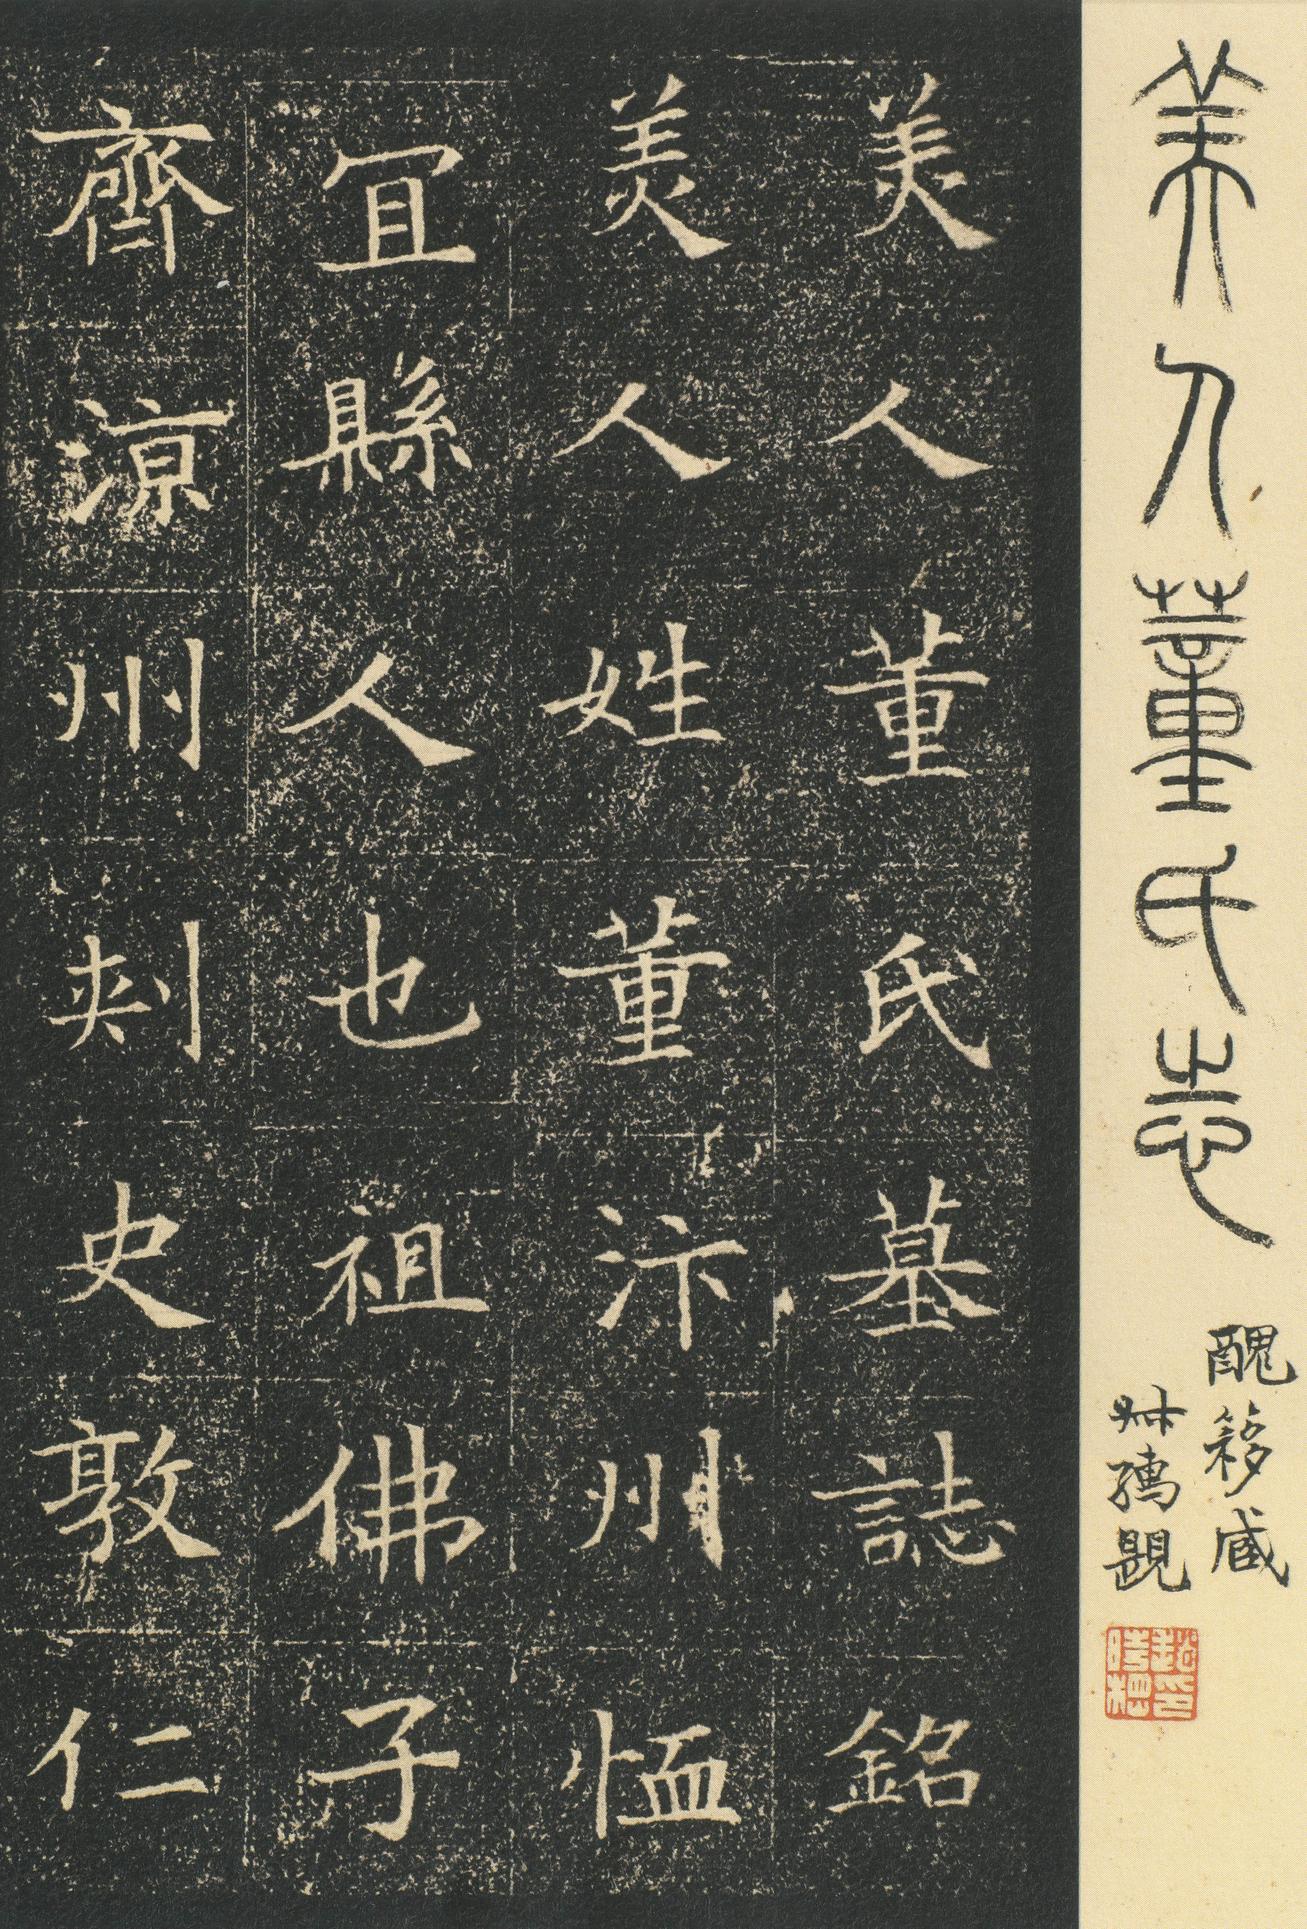 美人董氏志
醜簃臧
叔孺題
美人董氏墓誌銘
美人姓董汴州恤
宜縣人也祖佛子
齊涼州刾史敦仁